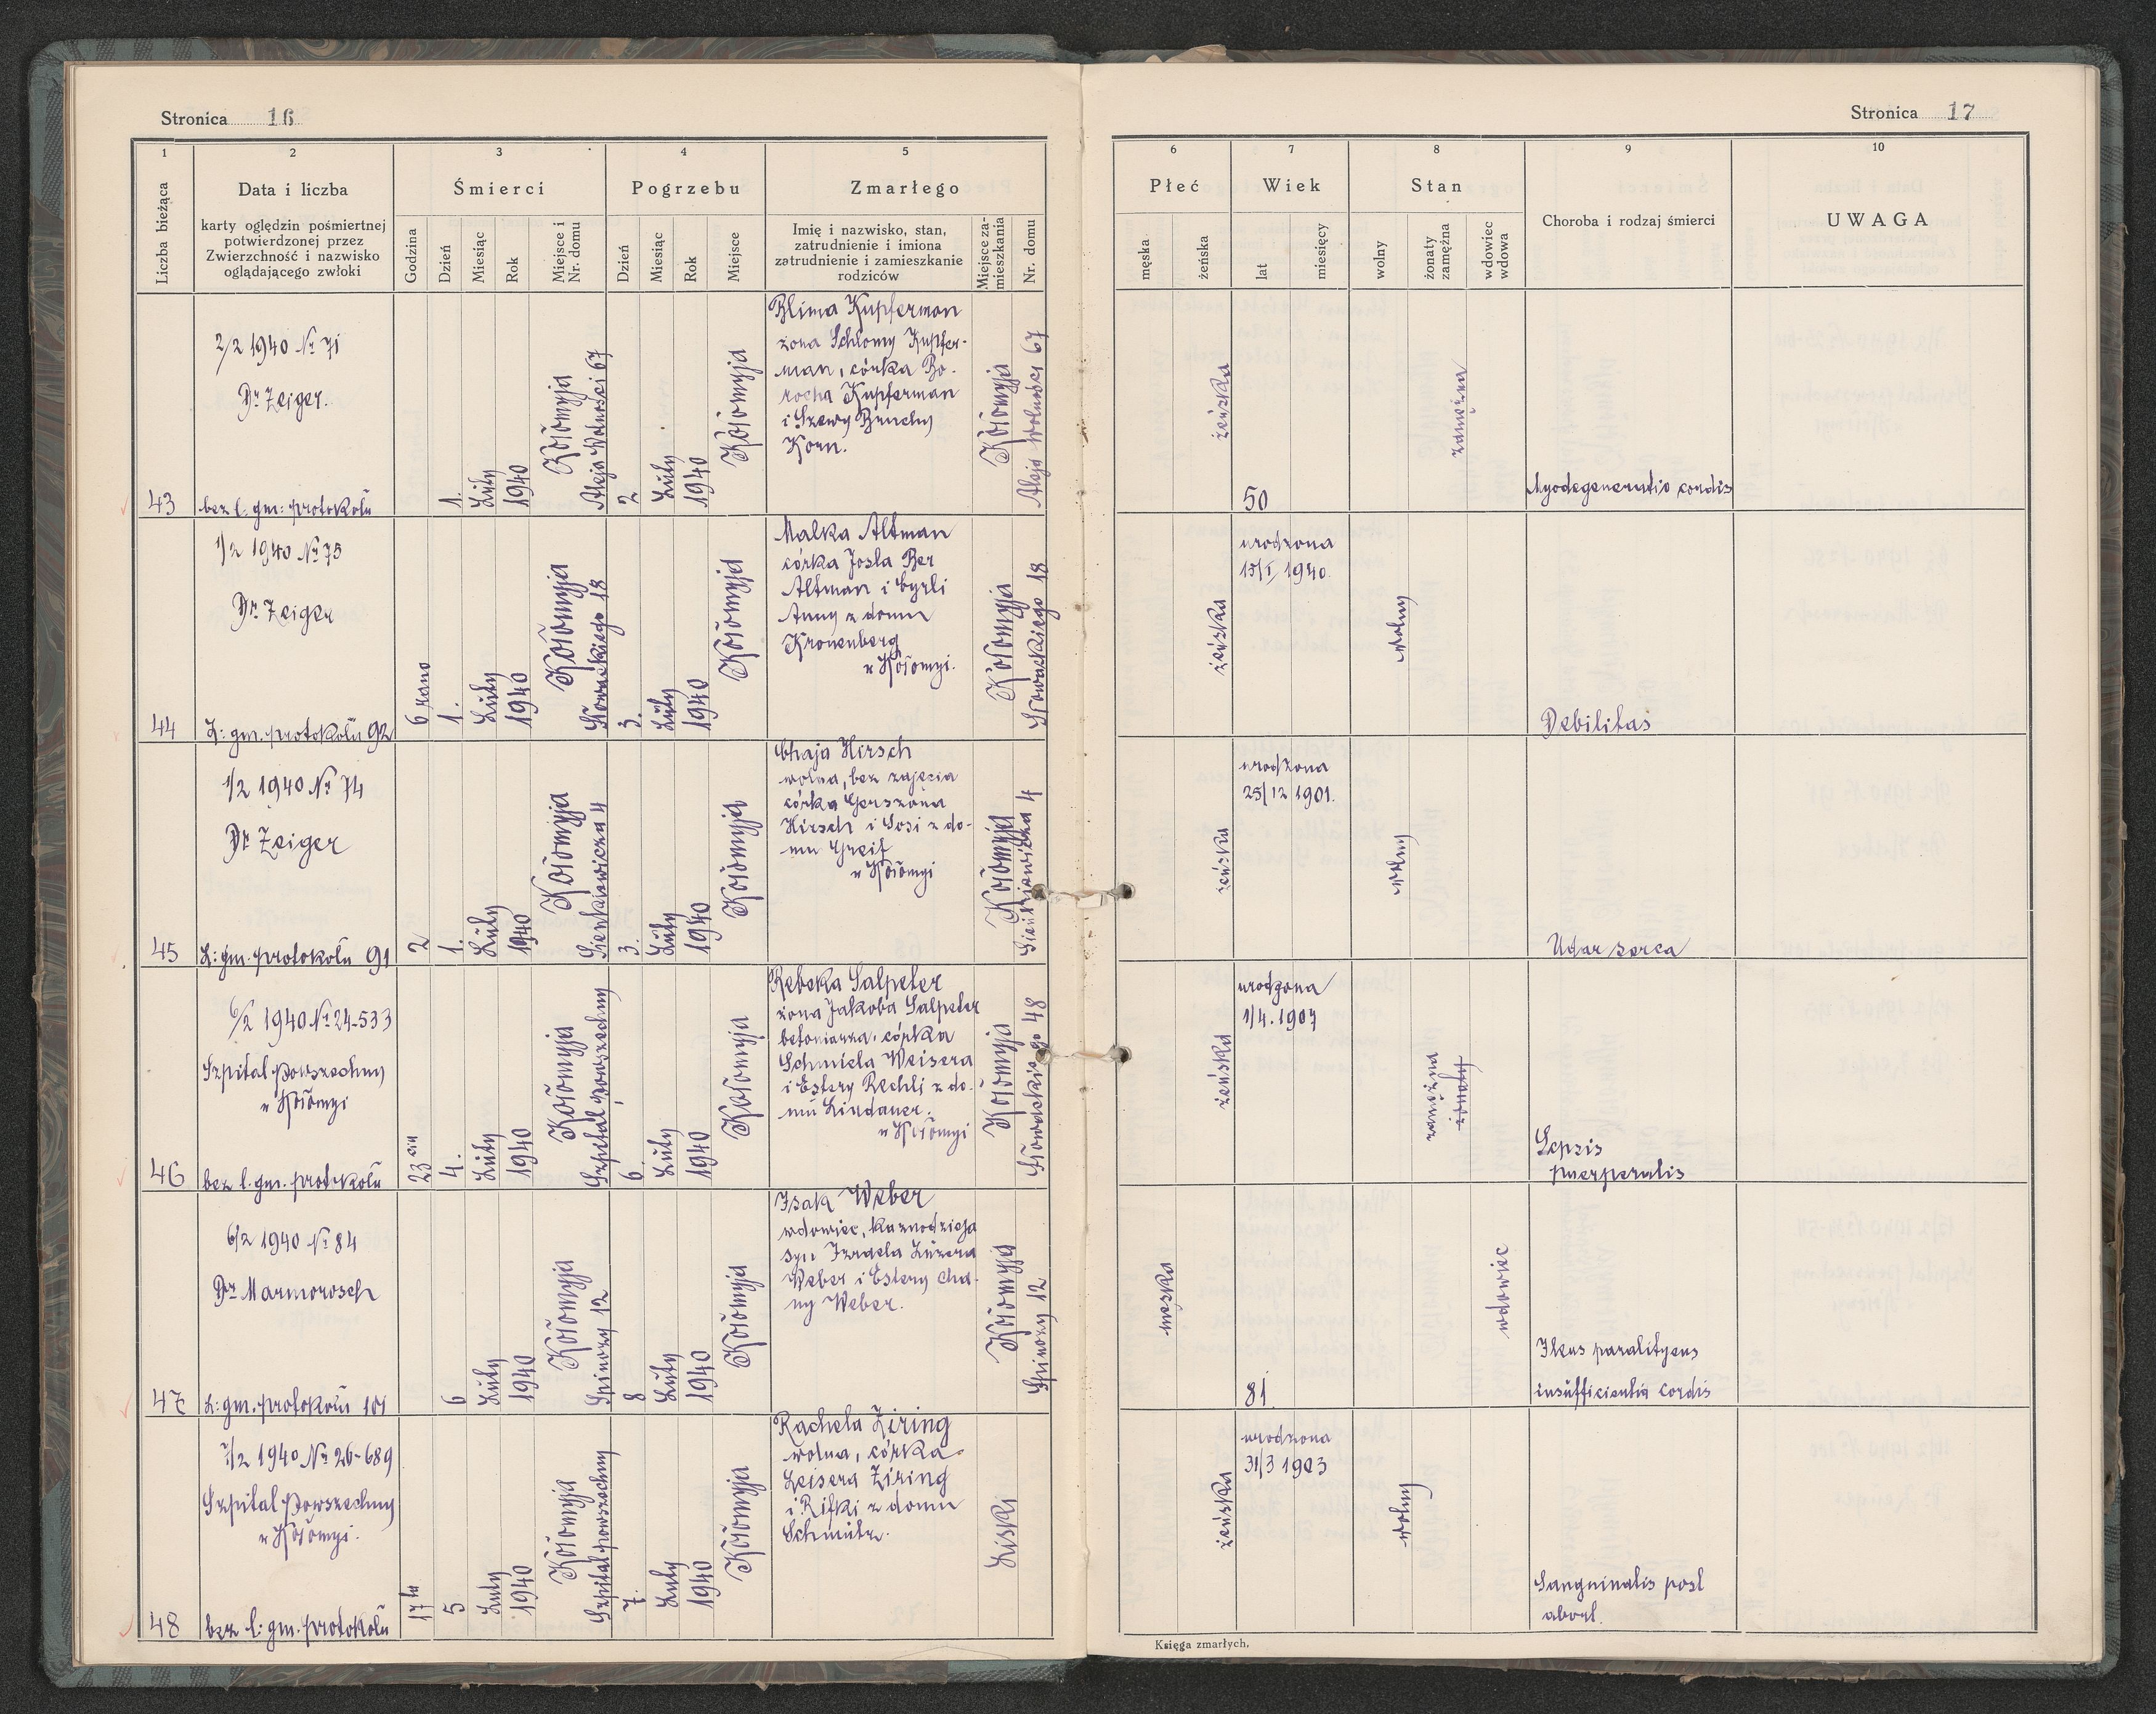 Stronica 16
1
2
3
4
5
Liczba bieżąca
Data i liczba
karty oględzin pośmiertnej
potwierdzonej przez
Zwierzchność i nazwisko
oglądającego zwłoki
Śmierci
Godzina
Dzień
Miesiąc
Rok
Miejsce i
Nr. domu
Pogrzebu
Dzień
Miesiąc
Rok
Miejsce
Zmarłego
Imię i nazwisko, stan,
zatrudnienie i imiona
zatrudnienie i zamieszkanie
rodziców
Miejsce za-
mieszkania
Nr. domu
43
2/2 1940 № 71
Dr Zeiger.
bez l. gm: protokolu
1.
Luty
1940
Kołomyja
Aleja Wolności 67
2
Luty
1940
Kołomyja
Blima Kupferman
żona Schlomy Kupfer-
man, córka Bo-
rocha Kupferman
i Szewy Bruchy
Korn.
Kołomyja
Aleja Wolności 67
44
1/2 1940 № 75
Dr Zeiger
L: gm. protokolu 92
6 rano
1.
Luty
1940
Kołomyja
Słowackiego 18
3.
Luty
1940
Kołomyja
Malka Altman
córka Josla Ber
Altman i Cyrli
Anny z domu
Kronenberg
w Kołomyi.
Kołomyja
Słowackiego 18
45
1/2 1940 № 74
Dr Zeiger
L: gm. protokolu 91
2
1.
Luty
1940
Kołomyja
Sienkiewicza 4
3.
Luty
1940
Kołomyja
Chaja Hirsch
wolna, bez zajęcia
córka Gerszona
Hirsch i Sosi z do-
mu Greif
w Kołomyi
Kołomyja
Sienkiewicza 4
46
6/2 1940 № 24-533
Szpital Powszechny
w Kołomyi
bez l. gm. protokolu
23 cia
4.
Luty
1940
Kołomyja
Szpital powszechny
6.
Luty
1940
Kołomyja
Rebeka Salpeter
żona Jakoba Salpeter
betoniarza, córka
Schmiela Weisera
i Estery Rechli z do-
mu Lindauer.
w Kołomyi
Kołomyja
Słowackiego 48
47
6/2 1940 № 84
Dr Marmorosch
L: gm. protokolu 101
6
Luty
1940
Kołomyja
Spinozy 12
8
Luty
1940
Kołomyja
Isak Weber
wdowiec, kaznodzieja
syn Izraela Luzera
Weber i Estery Cha-
ny Weber.
Kołomyja
Spinozy 12
48
7/2 1940 № 26-689
Szpital Powszechny
w Kołomyi.
bez l: gm. protokolu
17 ta
5
Luty
1940
Kołomyja
Szpital powszechny
7.
Luty
1940
Kołomyja
Rachela Ziring
wolna, córka
Leisera Ziring
i Rifki z domu
Schmilz.
Liski
Stronica 17
6
7
8
9
10
Płeć
męska
żeńska
Wiek
lat
miesięcy
Stan
wolny
żonaty
zamężna
wdowiec
wdowa
Choroba i rodzaj śmierci
UWAGA
żeńska
50
zamężna
Myodegeneratio cordis
żeńska
urodzona
15/I 1940.
wolny
Debilitas
żeńska
urodzona
25/12 1901.
wolny
Udar serca
żeńska
urodzona
1/4. 1907
zamężna
żonaty
Sepsis
puerperalis
męska
81.
wdowiec
Ileus paralitycus
insufficientia cordis
żeńska
urodzona
31/3 1903
wolny
Sanguinatis post
abort.
Księga zmarłych.